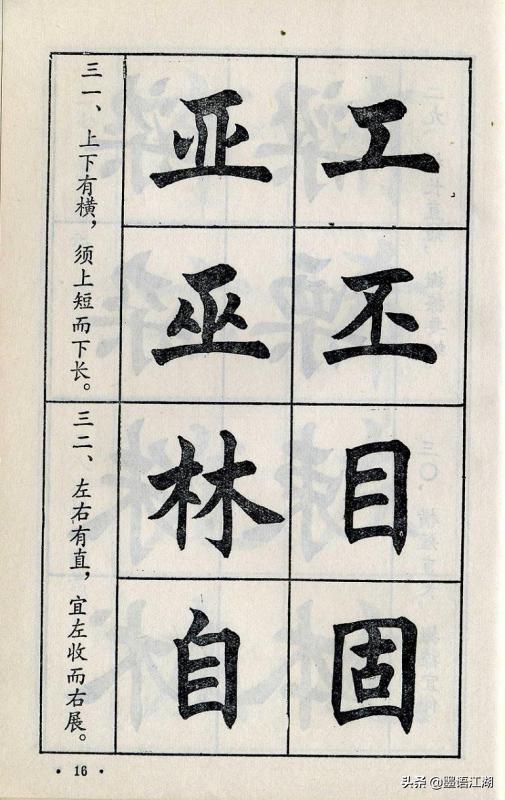 三一、上下有横，须上短而下长。
工亚
丕巫
三二、左右有直，宜左收而右展。
目林
固自
• 16 •
头条 @墨语江湖